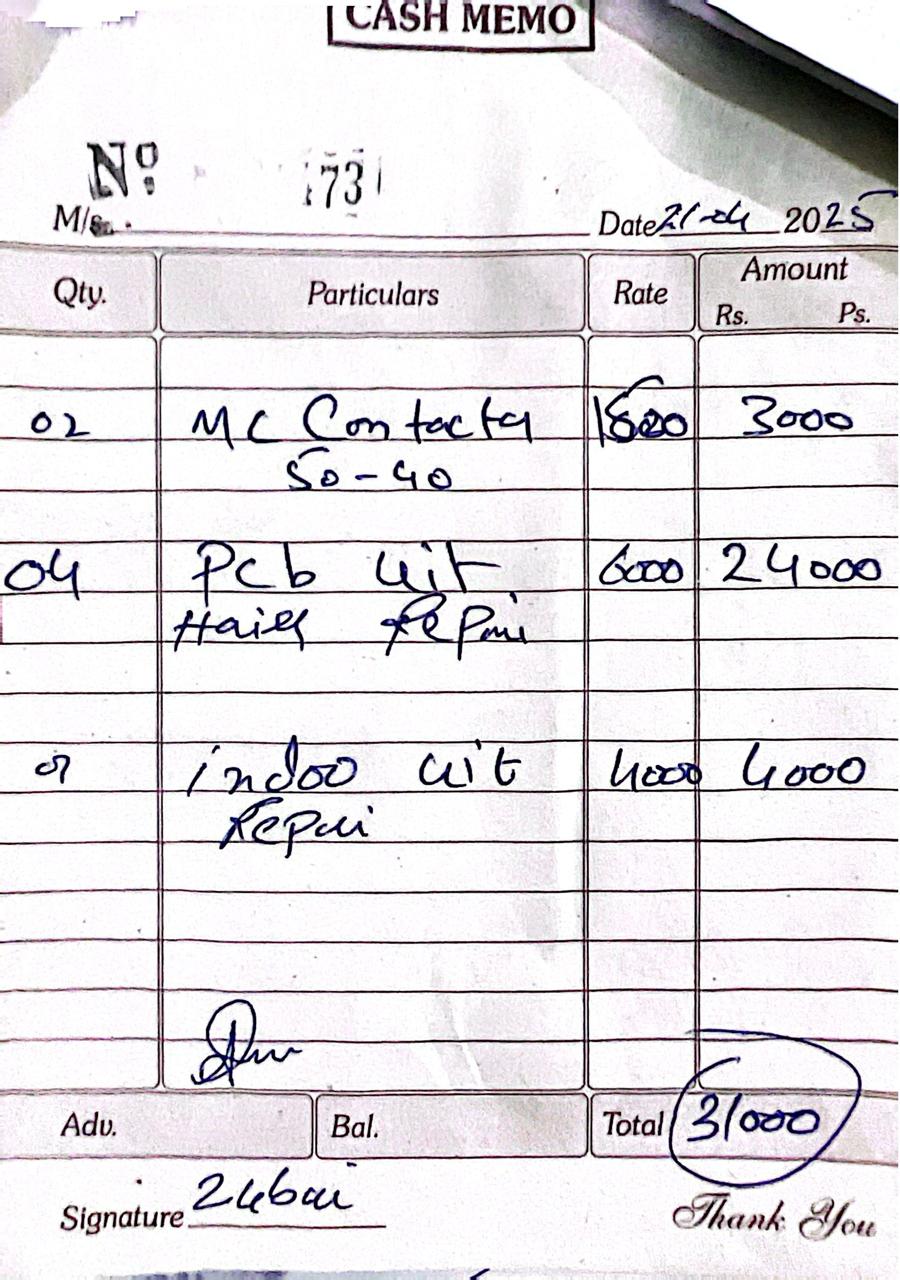 CASH MEMO
Nº 173
M/s. Date 21-04 2025
Qty. Particulars Rate Amount
Rs. Ps.
02 MC Contacter 1500 3000
50-40
04 PCb Kit 6000 24000
Haier Repair
01 indoo Kit 4000 4000
Repair
Adv. Bal. Total 31000
Signature
Thank You